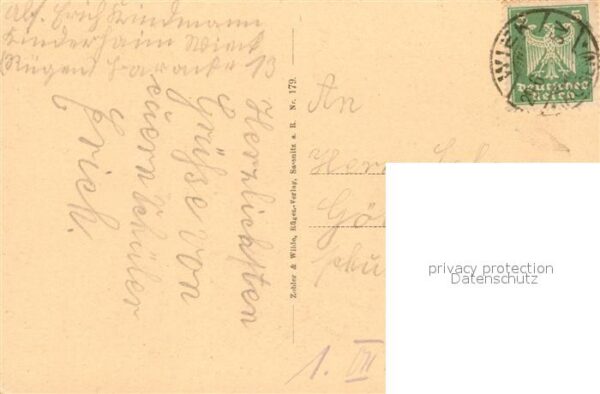 Abs. Erich Lindmann
Kinderheim Wiek
(Rügen) Baracke 13
Herzlichsten
Grüße von
eurem Schüler
Erich.
Zobler & Wilde, Rügen-Verlag, Sassnitz a. R. Nr. 179.
An
Herrn
1. VII
5
Deutsches
Reich
WIEK
privacy protection
Datenschutz